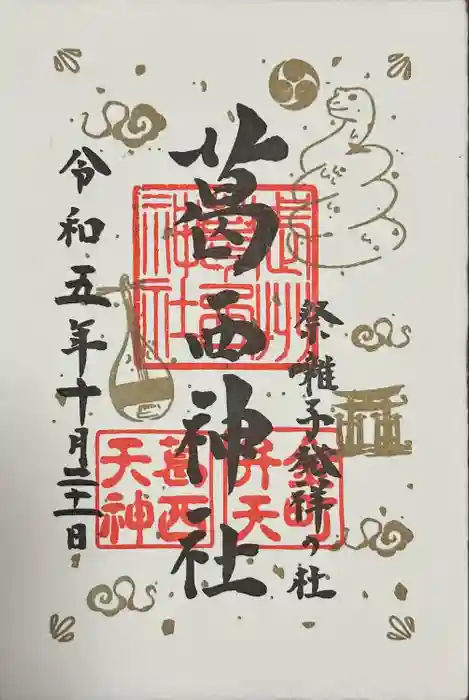 祭囃子発祥の社
葛西神社
令和五年十月二十一日
武州
葛西
神社
金町
弁天
葛西
天神